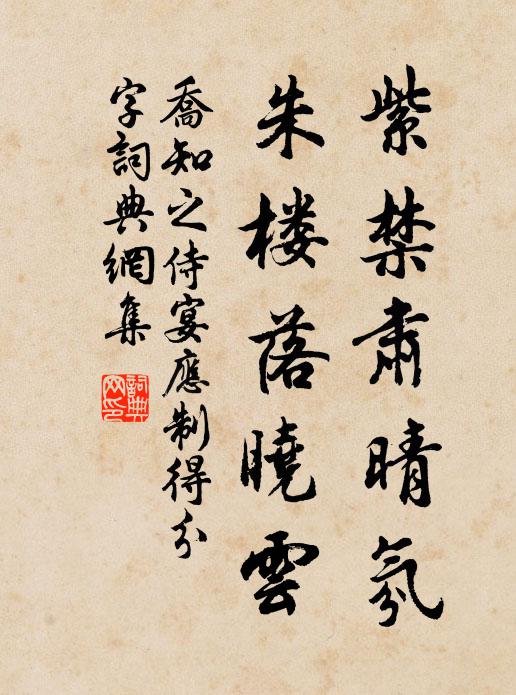 紫禁肅晴氛
朱楼落曉雲
喬知之侍宴應制得分
字詞典網集
詞典网印